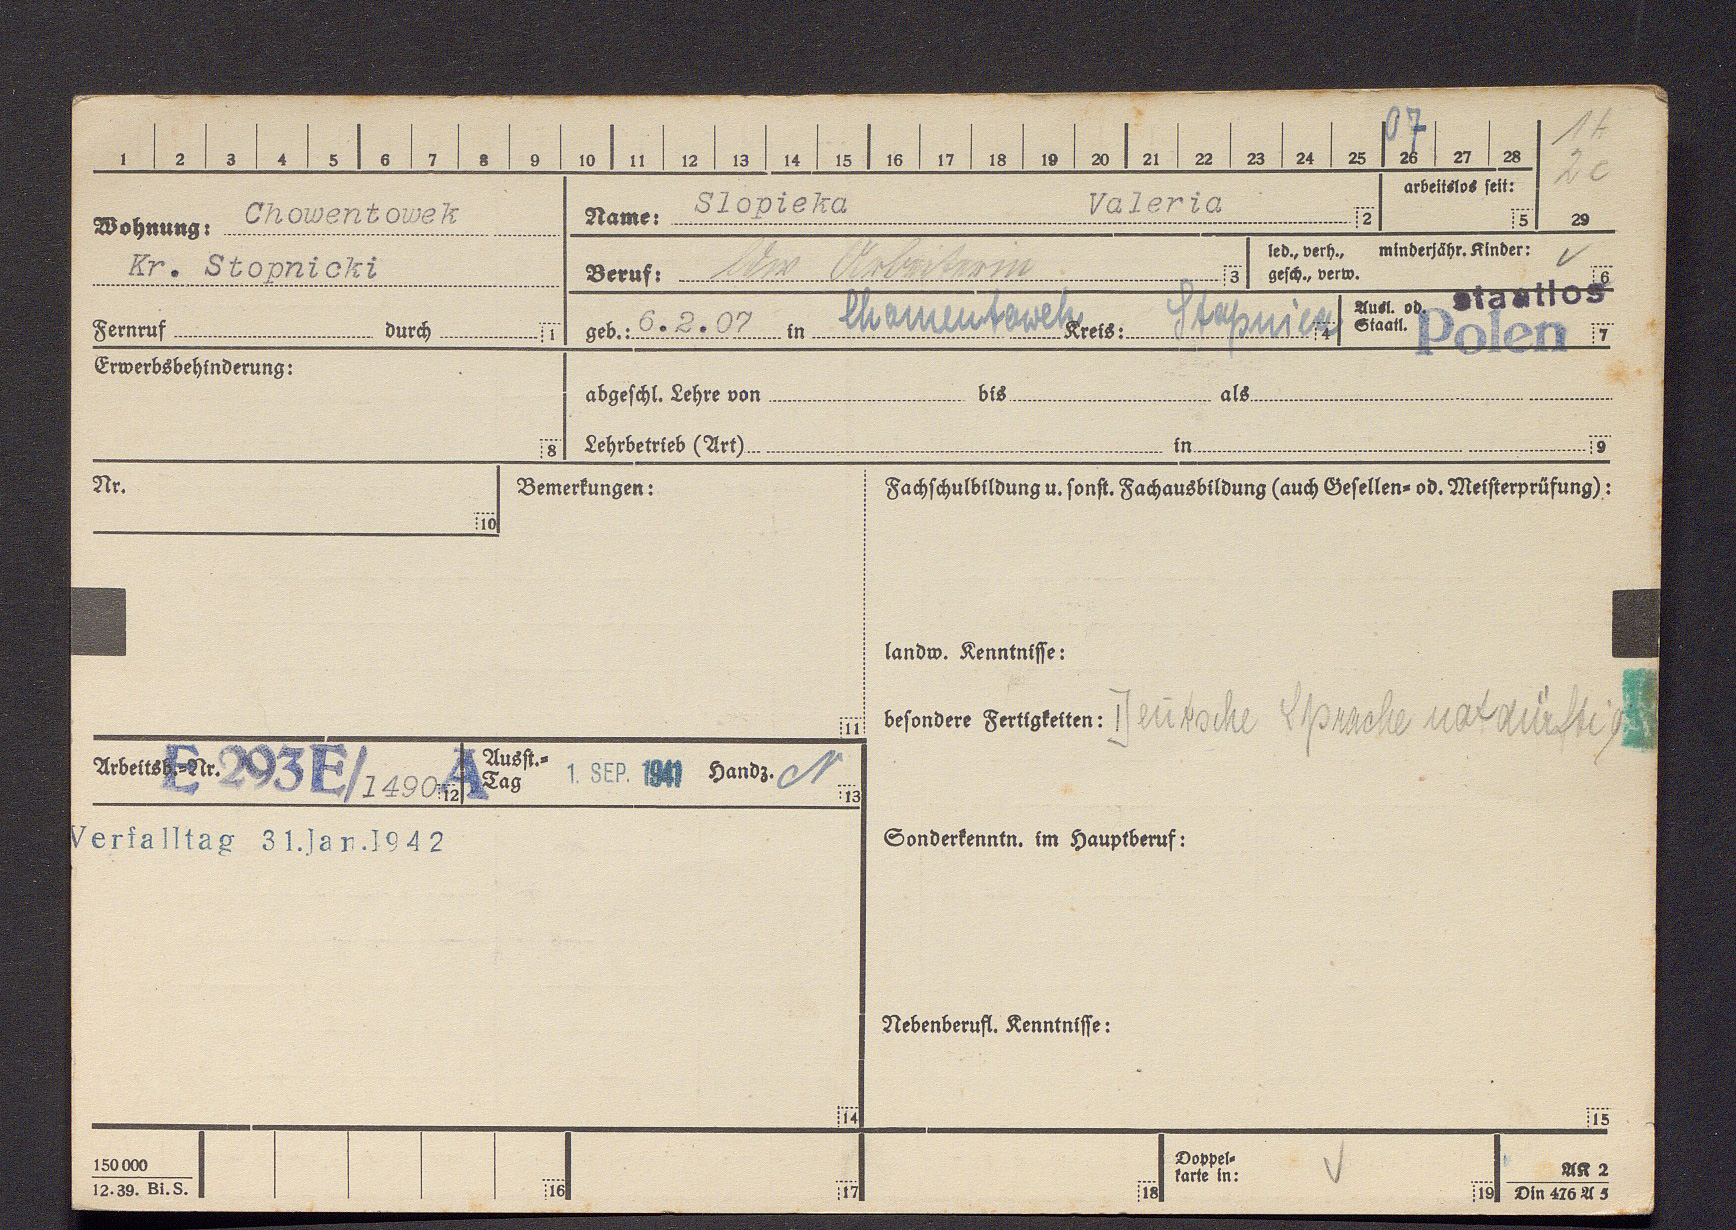 07
1 2 3 4 5 6 7 8 9 10 11 12 13 14 15 16 17 18 19 20 21 22 23 24 25 26 27 28
Wohnung: Chowentowek
Kr. Stopnicki
Fernruf durch 1
Name: Slopieka Valeria 2
arbeitslos seit: 5
29
Beruf: Arbeiterin 3
led., verh., minderjähr. Kinder: ✓
gesch., verw. 6
geb.: 6.2.07 in Chamentoweh Kreis: Stopnica 4
Ausl. od. staatlos
Staatl. Polen 7
Erwerbsbehinderung:
8
abgeschl. Lehre von bis als
Lehrbetrieb (Art) in 9
Nr.
10
Bemerkungen:
11
Fachschulbildung u. sonst. Fachausbildung (auch Gesellen- od. Meisterprüfung):
landw. Kenntnisse:
besondere Fertigkeiten: Deutsche Sprache notdürftig
Arbeitsb.-Nr. E 293E/1490 A 12
Ausst.-
Tag 1. SEP. 1941 Handz. 13
Verfalltag 31.Jan.1942
14
Sonderkenntn. im Hauptberuf:
Nebenberufl. Kenntnisse:
15
150 000
12.39. Bi.S.
16 17 18
Doppel-
karte in: ✓ 19
AK 2
Din 476 A 5